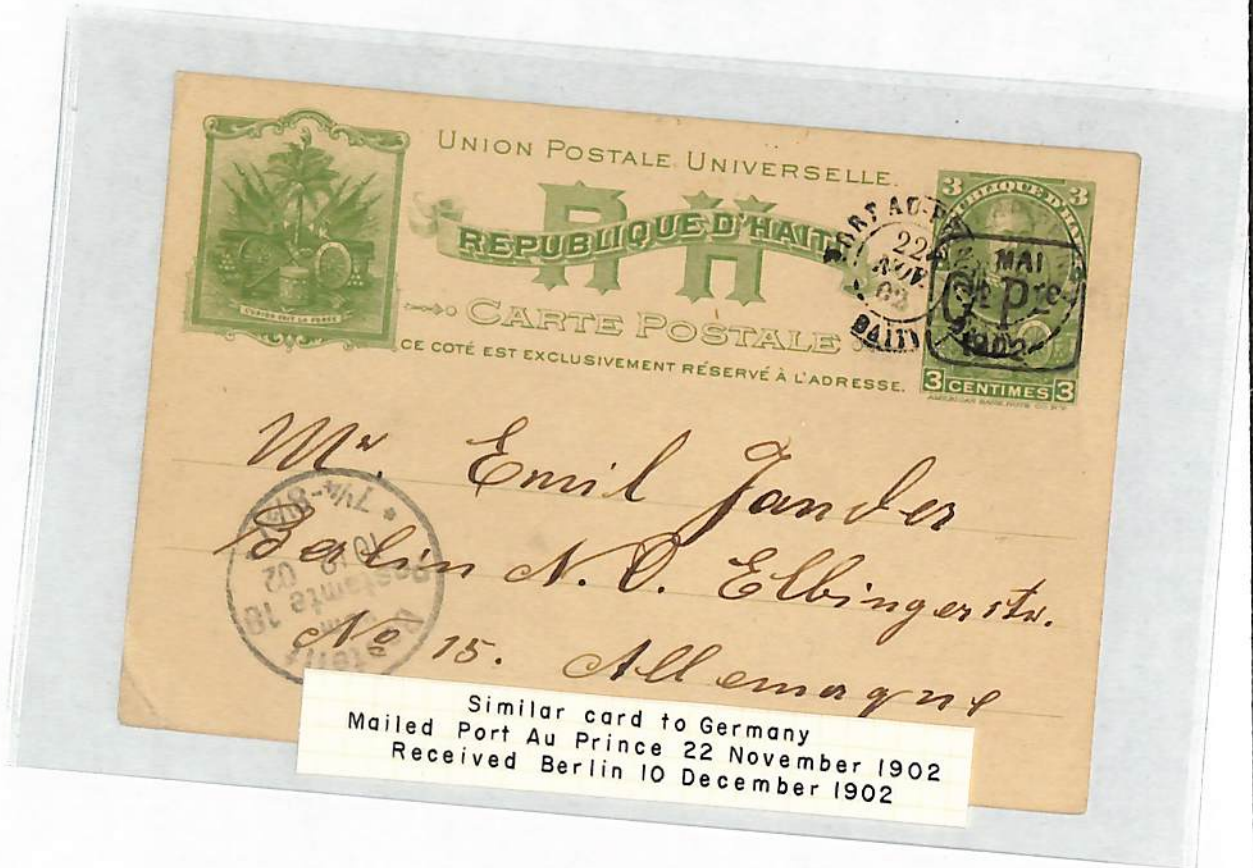 UNION POSTALE UNIVERSELLE.
RH
REPUBLIQUE D'HAITI
CARTE POSTALE
CE COTÉ EST EXCLUSIVEMENT RÉSERVÉ À L'ADRESSE.
L'UNION FAIT LA FORCE
3 3
3 CENTIMES 3
AMERICAN BANK NOTE CO. N.Y.
PORT AU-P
22
NOV
02
HAITI
MAI
Gt Pre
1902
Mr. Emil Jander
Berlin N. O. Elbingerstr.
No 15. Allemagne
Bestellt
Postamte 18
10 12
02
* 7¼-8½
Similar card to Germany
Mailed Port Au Prince 22 November 1902
Received Berlin 10 December 1902